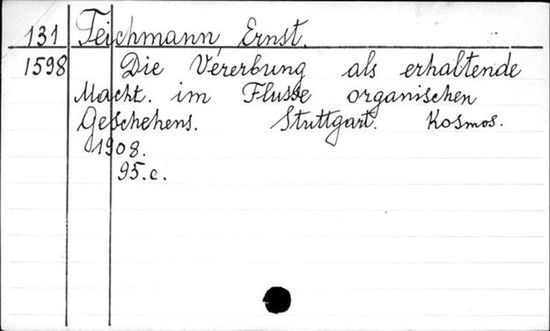 131 Teichmann, Ernst.
1598 Die Vererbung als erhaltende
Macht. im Flusse organischen
Geschehens. Stuttgart. Kosmos.
1908.
95.c.